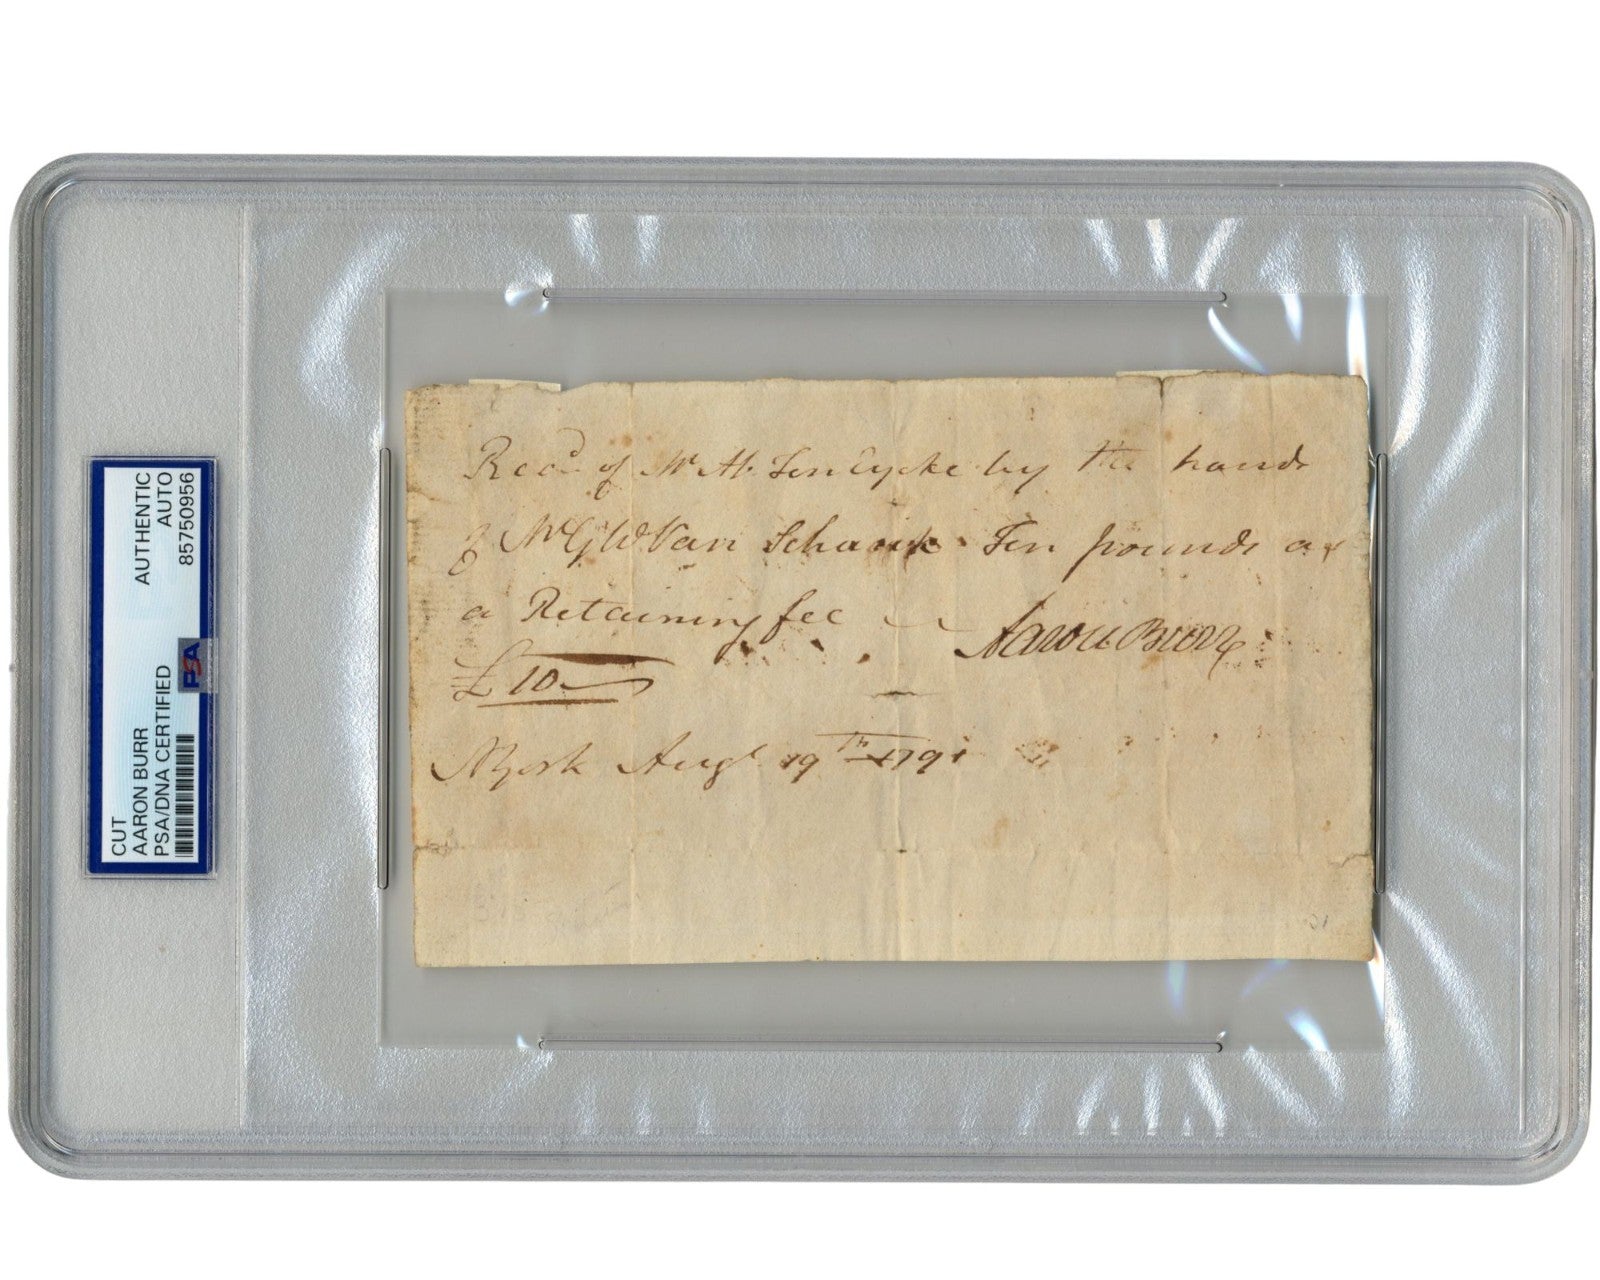 CUT
AARON BURR
PSA/DNA CERTIFIED
AUTHENTIC
AUTO
85750956
PSA
Recd. of Mr. Ab. Ten Eycke by the hands
of Mr G W Van Schaick Ten pounds as
a Retaining fee
Aaron Burr
£10
NYork Augt 19th 1791